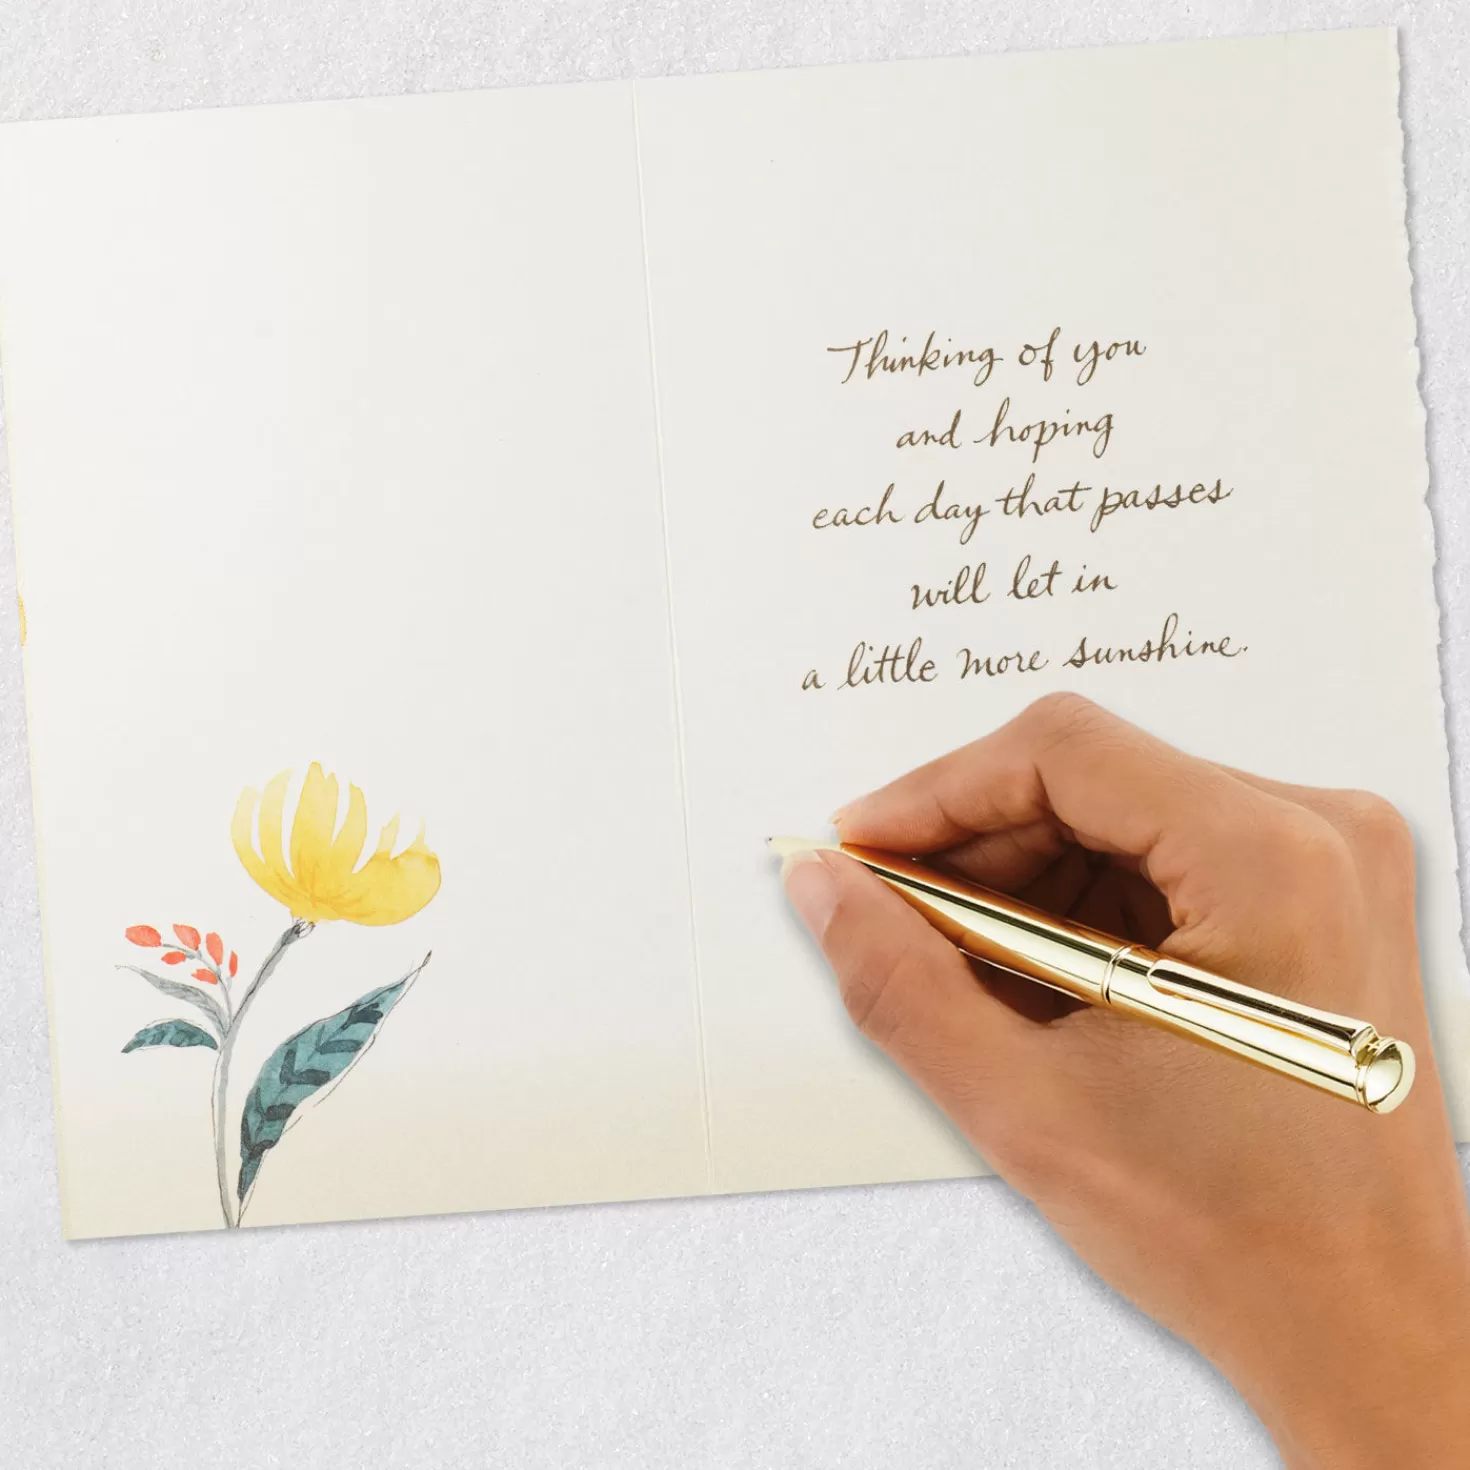 Thinking of you
and hoping
each day that passes
will let in
a little more sunshine.